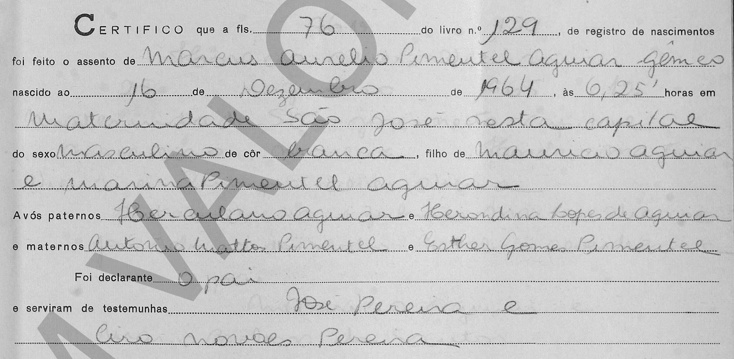 CERTIFICO que a fls. 76 do livro n.º 129, de registro de nascimentos
foi feito o assento de Marcus Aurelio Pimentel Aguiar gêmeo
nascido ao 16 de Dezembro de 1964, às 6,25' horas em
Maternidade São José nesta capital
do sexo masculino de côr branca, filho de Mauricio Aguiar
e Marina Pimentel Aguiar
Avós paternos Herculano Aguiar e Herondina Lopes de Aguiar
e maternos Antonio Mattos Pimentel e Esther Gomes Pimentel
Foi declarante o pai
e serviram de testemunhas José Pereira e
Novaes Pereira
M VALOR